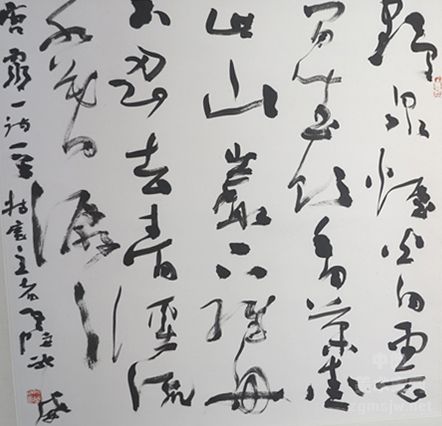 野泉烟火白云
间坐饮香茶爱
此山岩下维舟
不忍去青溪流
水暮潺
唐灵一诗一
zgmsjw.net